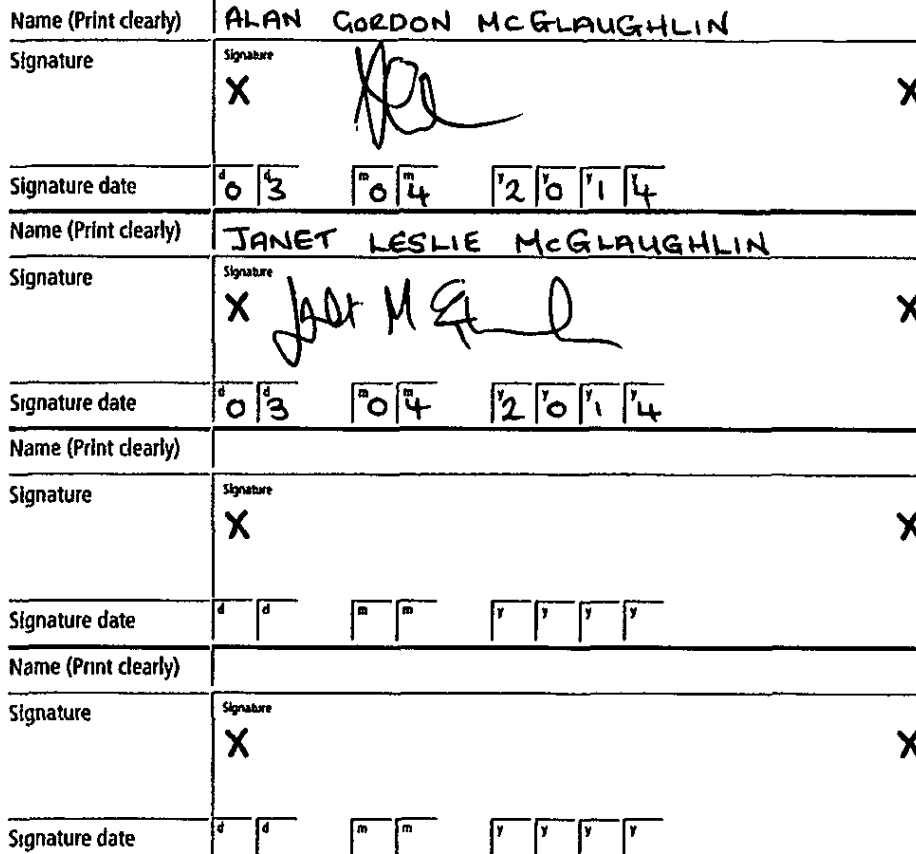 Name (Print clearly) ALAN GORDON MCGLAUGHLIN
Signature Signature
X X
Signature date d0 d3 m0 m4 y2 y0 y1 y4
Name (Print clearly) JANET LESLIE McGLAUGHLIN
Signature Signature
X X
Signature date d0 d3 m0 m4 y2 y0 y1 y4
Name (Print clearly)
Signature Signature
X X
Signature date d d m m y y y y
Name (Print clearly)
Signature Signature
X X
Signature date d d m m y y y y